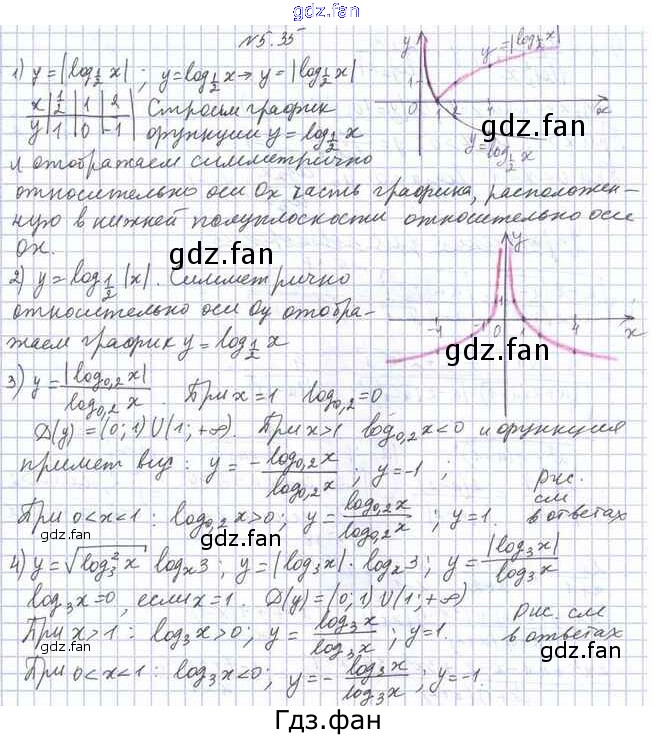 gdz.fan
№5.35
1) y=|log_{1/2} x| ; y=log_{1/2} x → y=|log_{1/2} x|
x | 1/2 | 1 | 2 | Строим график
y | 1 | 0 | -1 | функции y=log_{1/2} x
и отображаем симметрично
относительно оси Ox часть графика, расположен-
ную в нижней полуплоскости относительно оси
Ox.
y
y=|log_{1/2} x|
1
0 1 2 4 x
y=log_{1/2} x
gdz.fan
gdz.fan
2) y=log_{1/2} |x|. Симметрично
относительно оси Oy отобра-
жаем график y=log_{1/2} x
y
1
-4 -1 0 1 4 x
gdz.fan
3) y=|log_{0,2} x|/log_{0,2} x. При x=1 log_{0,2}=0
D(y)=(0;1)U(1;+∞). При x>1 log_{0,2} x<0 и функция
примет вид: y=-log_{0,2} x/log_{0,2} x ; y=-1 ;
gdz.fan
gdz.fan
При 0<x<1: log_{0,2} x>0; y=log_{0,2} x/log_{0,2} x ; y=1.
Рис.
см
в ответах
4) y=√(log_3^2 x) log_x 3; y=|log_3 x|·log_x 3; y=|log_3 x|/log_3 x
log_3 x=0, если x=1. D(y)=(0;1)U(1;+∞)
При x>1: log_3 x>0; y=log_3 x/log_3 x ; y=1.
Рис. см
в ответах
gdz.fan
gdz.fan
При 0<x<1: log_3 x<0; y=-log_3 x/log_3 x ; y=-1.
Гдз.фан